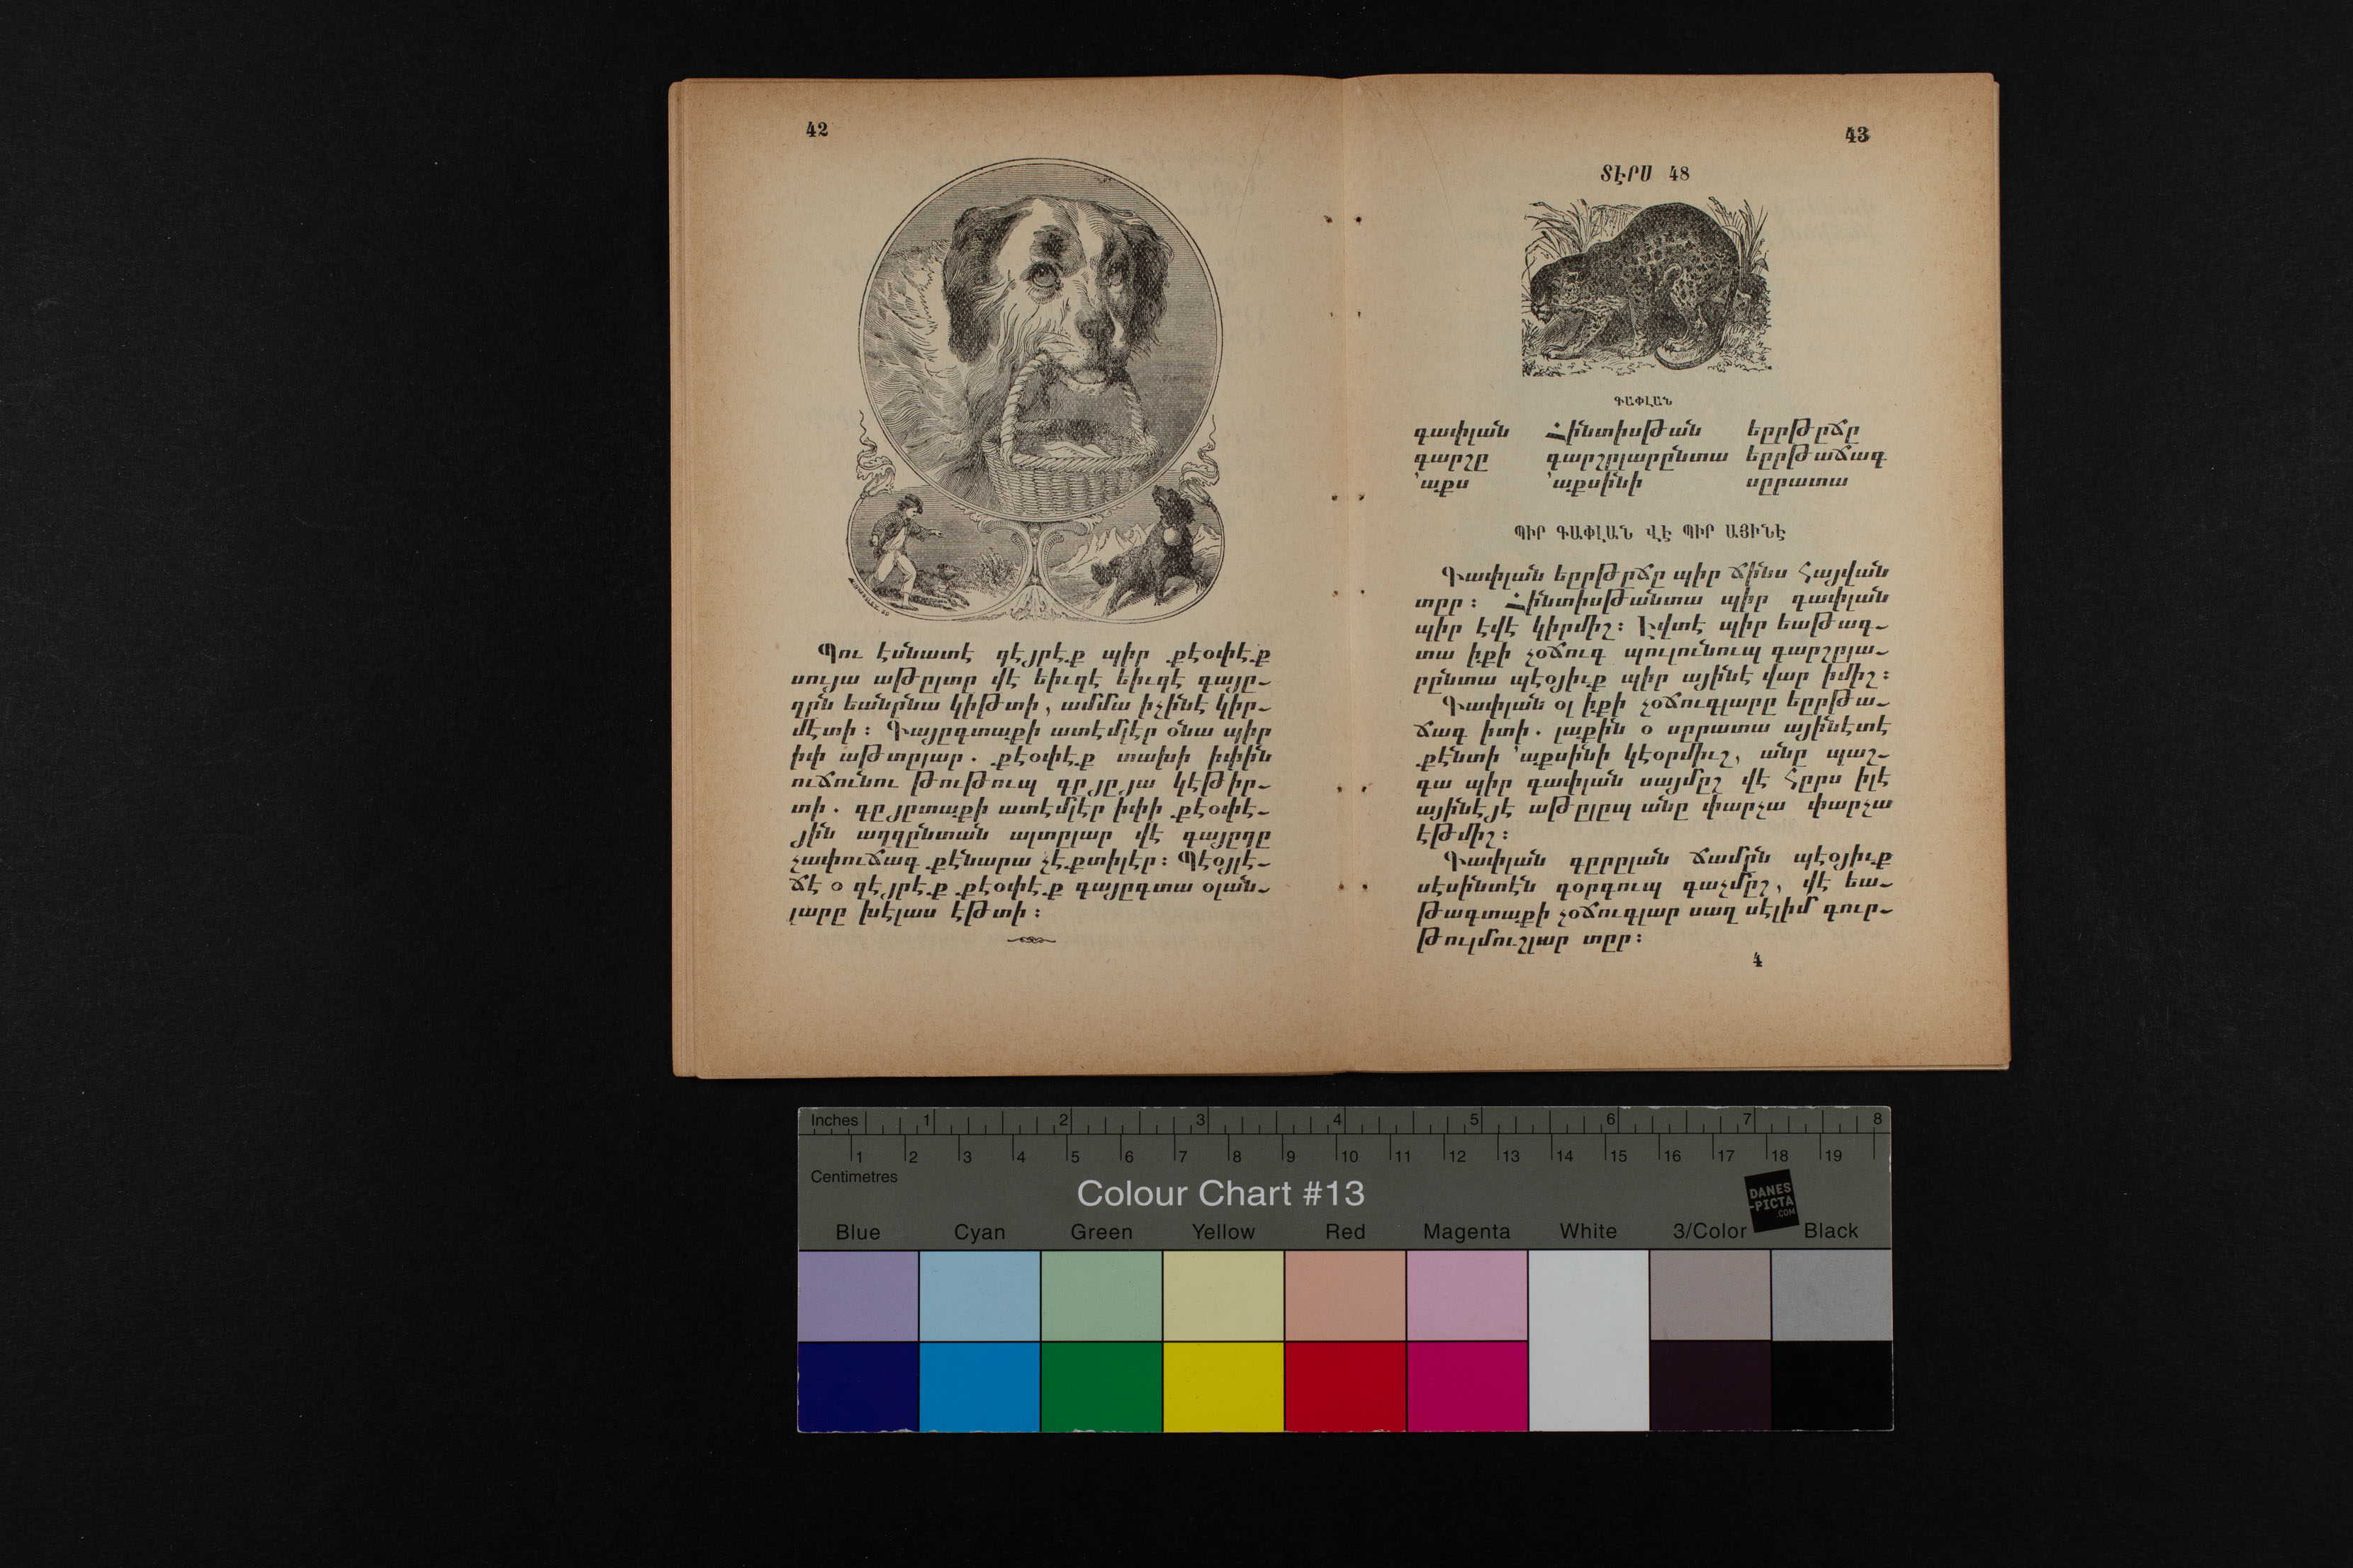 42
Պու էսնատէ զէյրէք պիր քէօփէք
սույա աթըլտը վէ եիւզէ եիւզէ գայը֊
ղըն եանընա կիթտի, ամմա իչինէ կիր֊
մէտի։ Գայըգտաքի ատէմլէր օնա պիր
իփ աթտըլար. քէօփէք տախի իփին
ուճունու թութուպ գըյըյա կէթիր֊
տի. գըյըտաքի ատէմլէր իփի քէօփէ֊
յին աղզընտան ալտըլար վէ գայըղը
չափուճագ քէնարա չէքտիլէր։ Պէօյլէ֊
ճէ օ զէյրէք քէօփէք գայըգտա օլան֊
լարը խէլաս էթտի։
43
ՏԷՐՍ 48
ԳԱՓԼԱՆ
գափլան Հինտիսթան եըրթըճը
գարշը գարշըլարընտա եըրթաճագ
՚աքս ՚աքսինի սըրատա
ՊԻՐ ԳԱՓԼԱՆ ՎԷ ՊԻՐ ԱՅԻՆԷ
Գափլան եըրթըճը պիր ճինս հայվան
տըր։ Հինտիսթանտա պիր գափլան
պիր էվէ կիրմիշ։ Էվտէ պիր եաթագ֊
տա իքի չօճուգ պուլունուպ գարշըլա֊
րընտա պէօյիւք պիր այինէ վար իմիշ։
Գափլան օլ իքի չօճուգլարը եըրթա֊
ճագ իտի. լաքին օ սըրատա այինէտէ
քէնտի ՚աքսինի կէօրմիւշ, անը պաշ֊
գա պիր գափլան սայմըշ վէ հըրս իլէ
այինէյէ աթըլըպ անը փարչա փարչա
էթմիշ։
Գափլան գըրըլան ճամըն պէօյիւք
սէսինտէն գօրգուպ գաչմըշ, վէ եա֊
թագտաքի չօճուգլար սաղ սէլիմ գուր֊
թուլմուշլար տըր։
4
Inches 1 2 3 4 5 6 7 8
1 2 3 4 5 6 7 8 9 10 11 12 13 14 15 16 17 18 19
Centimetres
Colour Chart #13
DANES
-PICTA
.COM
Blue Cyan Green Yellow Red Magenta White 3/Color Black